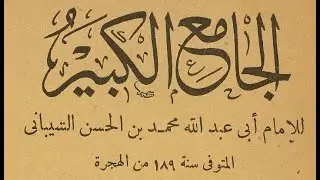 الجامع الكبير
للإمام أبي عبد الله محمد بن الحسن الشيباني
المتوفى سنة ١٨٩ من الهجرة